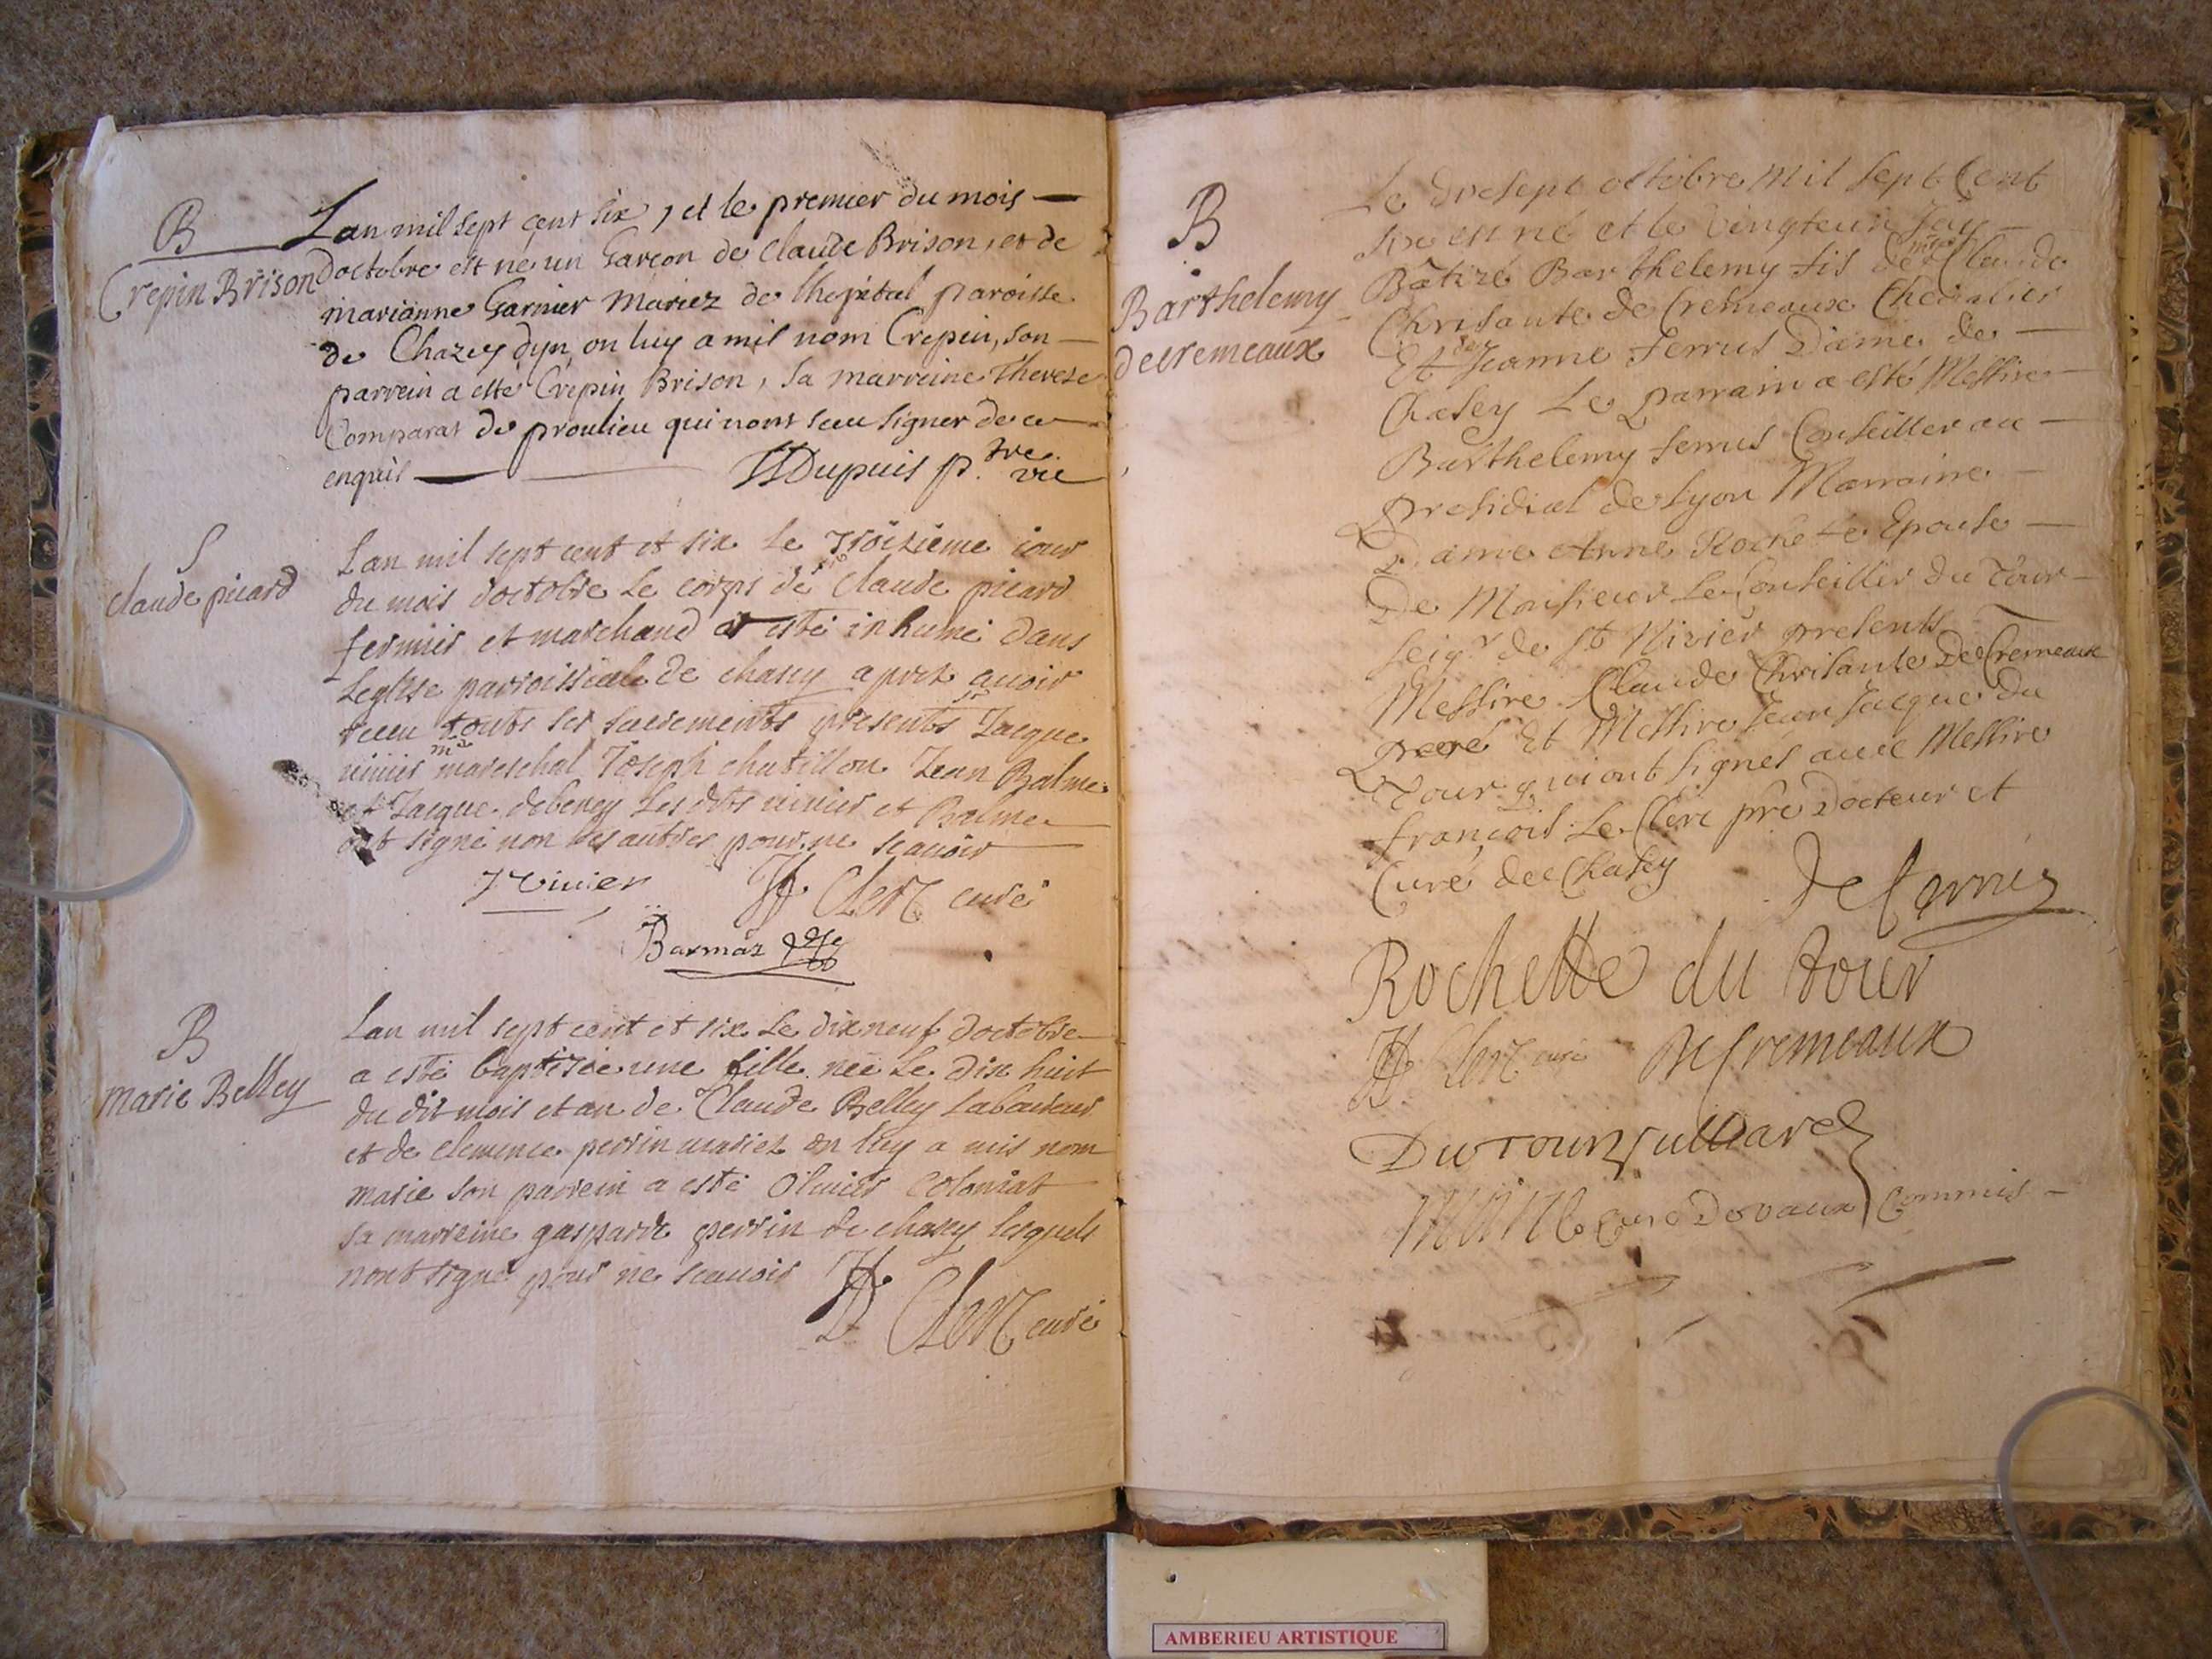 B
Crepin Brison
Lan mil sept cent six, et le premier du mois
doctobre est né un Garcon de Claude Brison, et de
marianne Garnier Mariez de lhopital paroisse
de Chazey dyn, on luy a mis nom Crepin, son
parrein a esté Crepin Brison, sa marreine Therese
Comparat de proulieu qui nont sceu signer de ce
enquis Dupuis ptre vic
S
claude picard
Lan mil sept cent et six Le troisieme iour
du mois doctobre Le corps de Claude picard
fermier et marchand a esté inhumé dans
Leglise parroissiale de chasey aprez auoir
receu touts ses sacrements presents sr Jacque
viuier me mareschal Joseph chatillon Jean Balme
et Jacque debeney Les dits viuier et Balme
ont signé non les autres pour ne scauoir
J Viuier Clerc curé
Barmaz
B
marie Belley
Lan mil sept cent et six Le dix neuf doctobre
a esté baptisée une fille née Le dix huit
du dit mois et an de Claude Belley Laboureur
et de Clemence perrin mariez on luy a mis nom
marie son parrein a esté Oliuier Coloniat
sa marreine gasparde perrin de chasey lesquels
nont signé pour ne scauoir
Clerc curé
B
Barthelemy
decremeaux
Le dixsept octobre Mil sept Cent
six est né et le vingteun
Bätizé Barthelemy fils de Claude
Chrisante de Cremeaux Chevalier
Et de Jeanne ferrus Dame de
Chasey Le Parrain a esté Messire
Barthelemy ferrus Conseiller au
Presidial de Lyon Marraine
Dame Anne Rochette Epouse
De Monsieur Le Conseiller du Tour
seigr de St Nivier presents
Messire Claude Chrisante De Cremeaux
Pere Et Messire Jean Jacque Du
Tour qui ont signés auec Messire
françois Le Clerc pre Docteur et
Curé de Chasey
Rochette du tour
Clerc curé De Cremeaux
Du Tour Vulliard
Curé De vaux Commis
AMBERIEU ARTISTIQUE